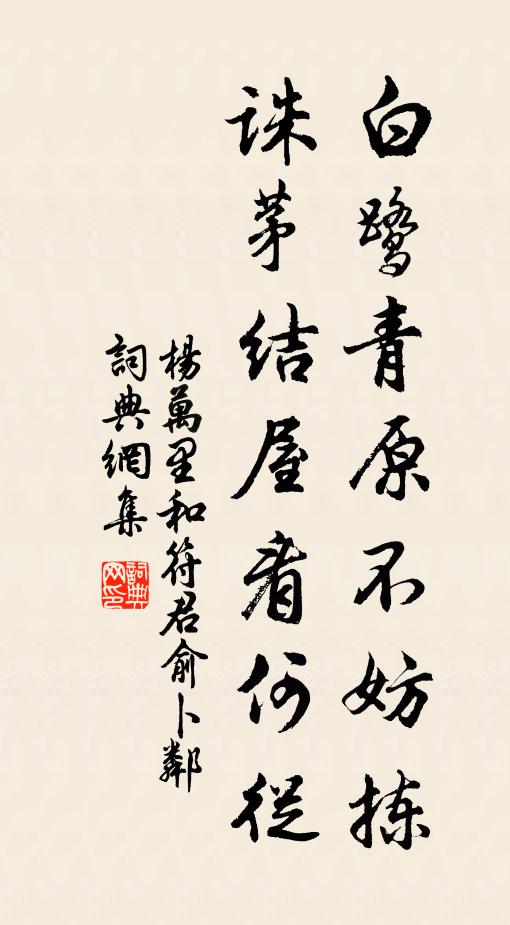 白鷺青原不妨揀
誅茅結屋看何從
楊萬里和符君俞卜鄰
詞典網集
詞典网印